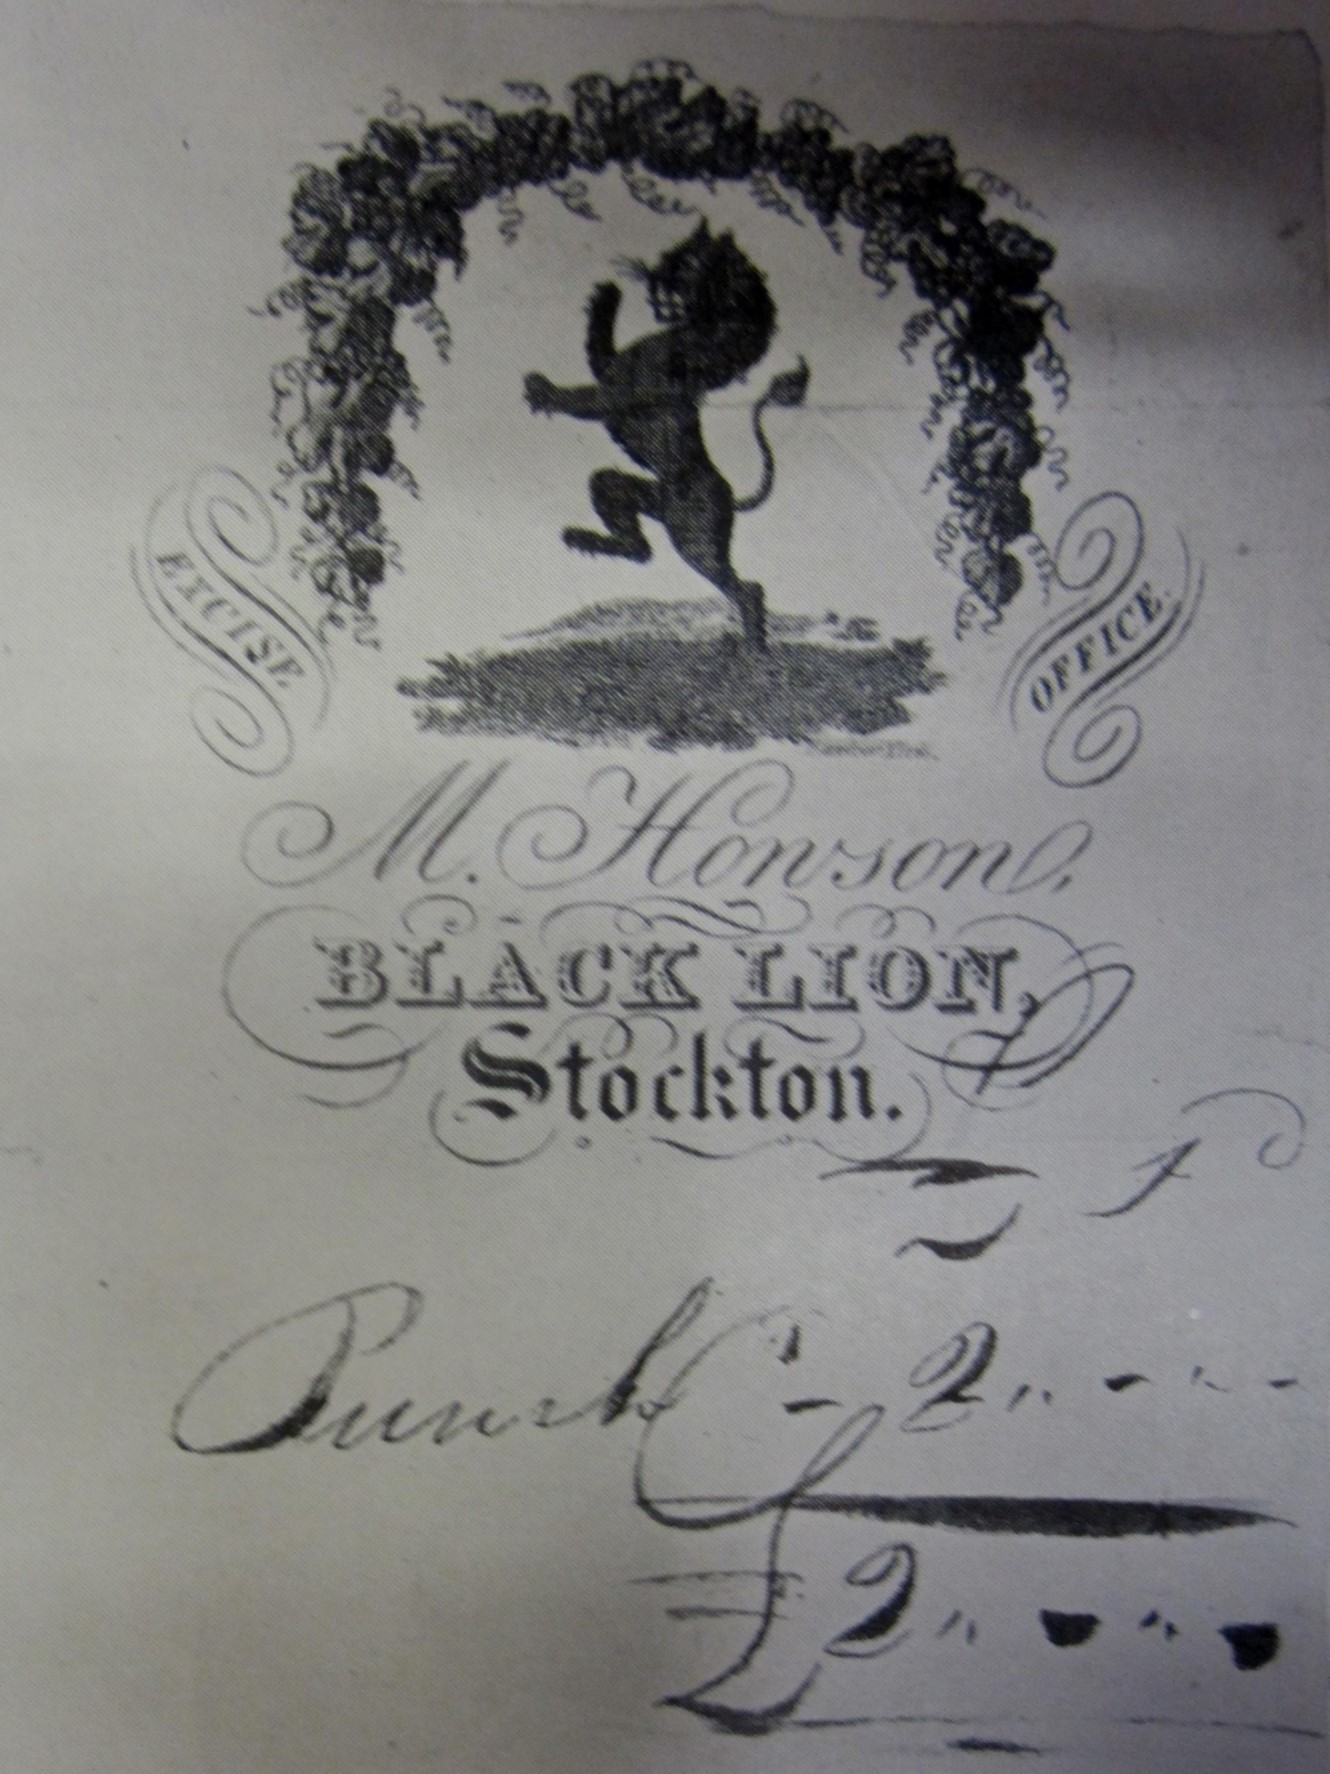 EXCISE OFFICE.
M. Honson,
BLACK LION,
Stockton.
Punch - 2 " - " -
£2 " - " -